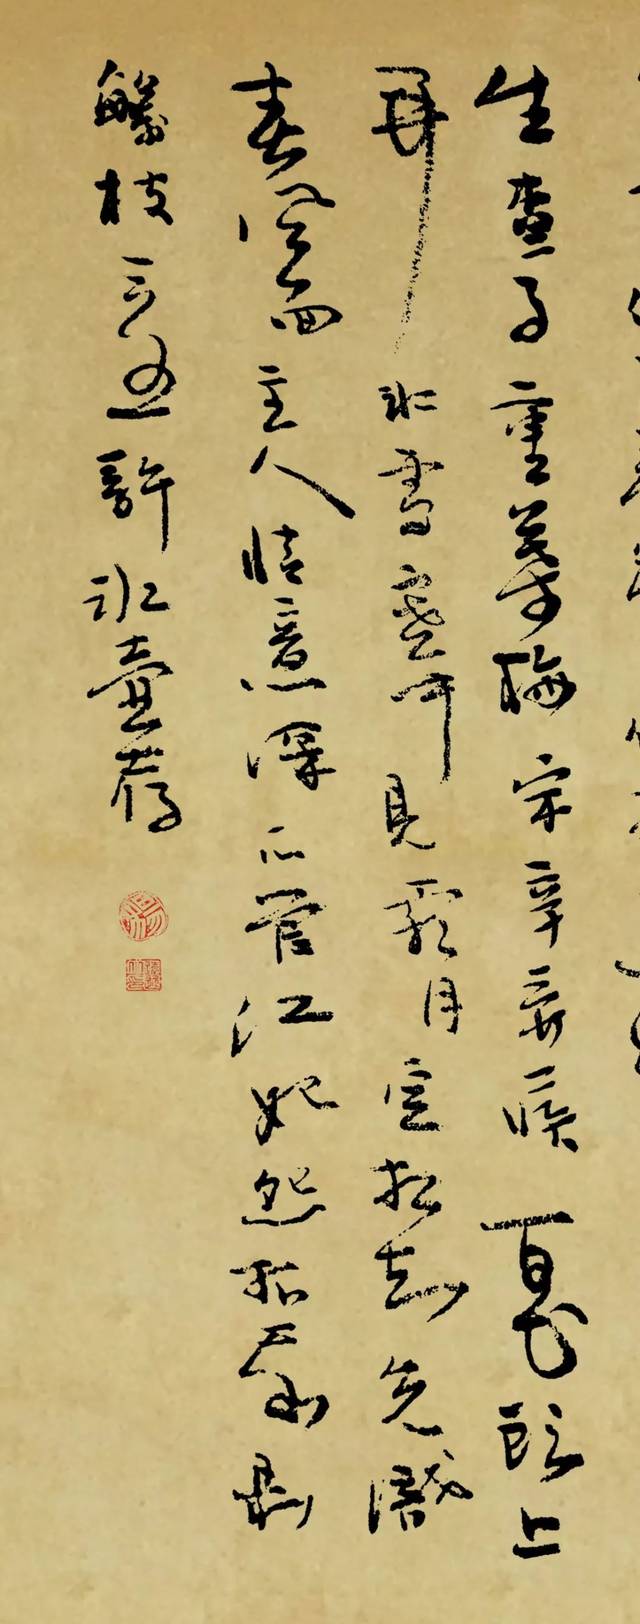 生查子重葉梅宋辛棄疾百花頭上
開冰雪寒中見霜月定相知先識
春風面主人情意深不管江妃怨折我最
繁枝還許冰壺荐